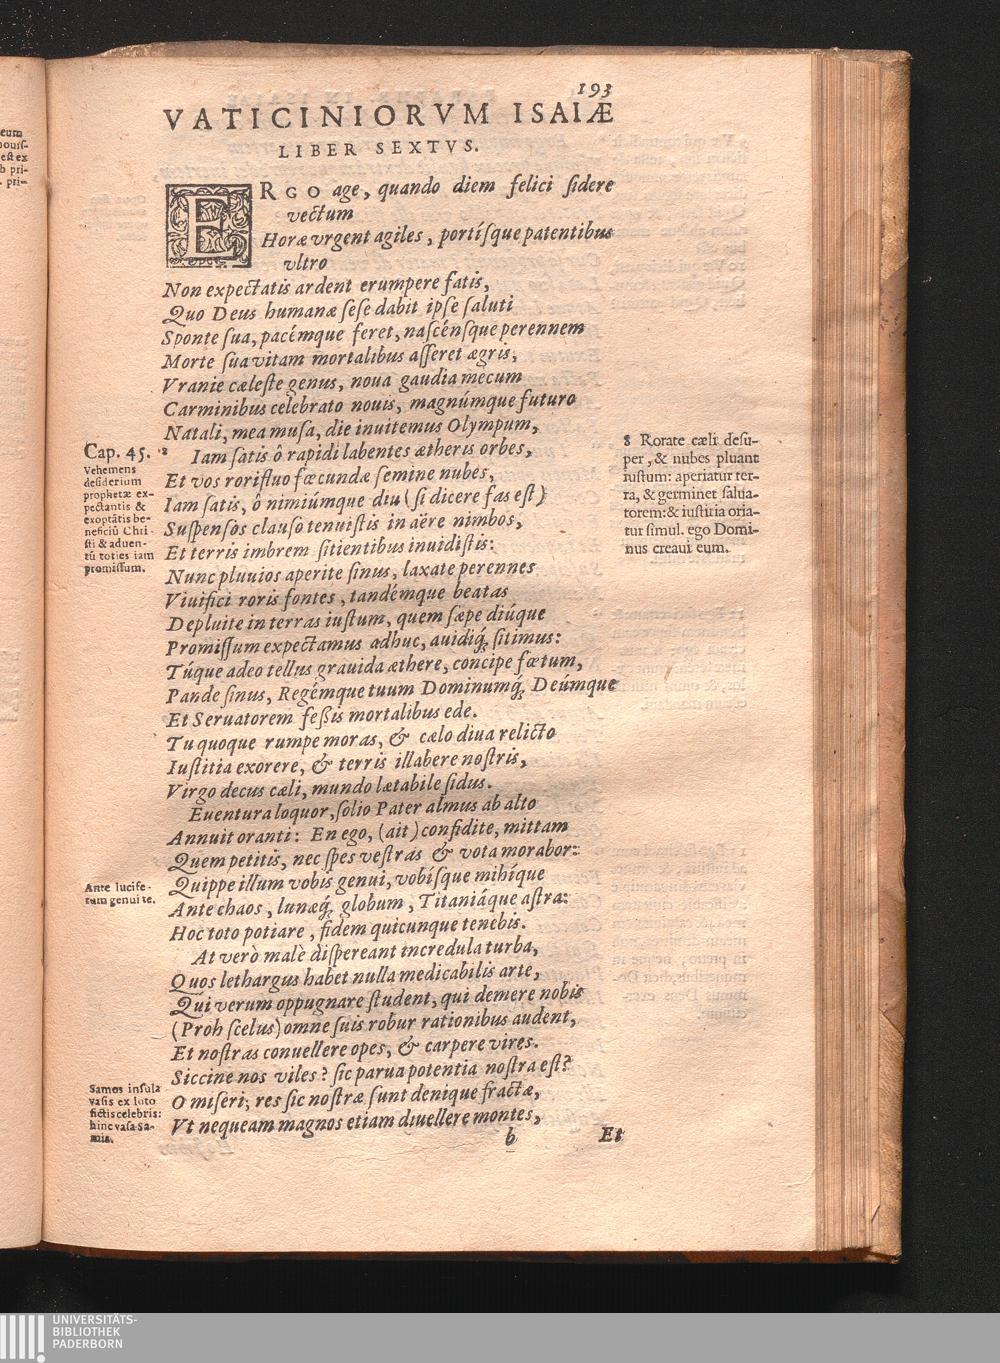 193
VATICINIORVM ISAIÆ
LIBER SEXTVS.
ERGO age, quando diem felici sidere
vectum
Horæ vrgent agiles, portísque patentibus
vltro
Non expectatis ardent erumpere fatis,
Quo Deus humanæ sese dabit ipse saluti
Sponte sua, pacémque feret, nascénsque perennem
Morte sua vitam mortalibus asseret ægris,
Vranie cæleste genus, noua gaudia mecum
Carminibus celebrato nouis, magnúmque futuro
Natali, mea musa, die inuitemus Olympum,
8 Iam satis ô rapidi labentes ætheris orbes,
Et vos rorifluo fœcundæ semine nubes,
Iam satis, ô nimiúmque diu (si dicere fas est)
Suspensos clauso tenuistis in aëre nimbos,
Et terris imbrem sitientibus inuidistis:
Nunc pluuios aperite sinus, laxate perennes
Viuifici roris fontes, tandémque beatas
Depluite in terras iustum, quem sæpe diúque
Promissum expectamus adhuc, auidiq́; sitimus:
Túque adeo tellus grauida æthere, concipe fœtum,
Pande sinus, Regémque tuum Dominumq́; Deúmque
Et Seruatorem feßis mortalibus ede.
Tu quoque rumpe moras, & cælo diua relicto
Iustitia exorere, & terris illabere nostris,
Virgo decus cæli, mundo lætabile sidus.
Euentura loquor, solio Pater almus ab alto
Annuit oranti: En ego, (ait) confidite, mittam
Quem petitis, nec spes vestras & vota morabor:
Quippe illum vobis genui, vobísque mihíque
Ante chaos, lunæq́; globum, Titaniáque astra:
Hoc toto potiare, fidem quicunque tenebis.
At verò malè dispereant incredula turba,
Quos lethargus habet nulla medicabilis arte,
Qui verum oppugnare student, qui demere nobis
(Proh scelus) omne suis robur rationibus audent,
Et nostras conuellere opes, & carpere vires.
Siccine nos viles? sic parua potentia nostra est?
O miseri; res sic nostræ sunt denique fractæ,
Vt nequeam magnos etiam diuellere montes,
b
Et
Cap. 45.
Vehemens
desiderium
prophetæ ex-
pectantis &
exoptātis be-
neficiū Chri-
sti & aduen-
tū toties iam
promissum.
Ante lucife-
rum genui te.
Samos insula
vasis ex loto
fictis celebris:
hinc vasa Sa-
mia.
8 Rorate cæli desu-
per, & nubes pluant
iustum: aperiatur ter-
ra, & germinet salua-
torem: & iustitia oria-
tur simul. ego Domi-
nus creaui eum.
eum
est ex
b pri-
pri-
UNIVERSITÄTS-
BIBLIOTHEK
PADERBORN